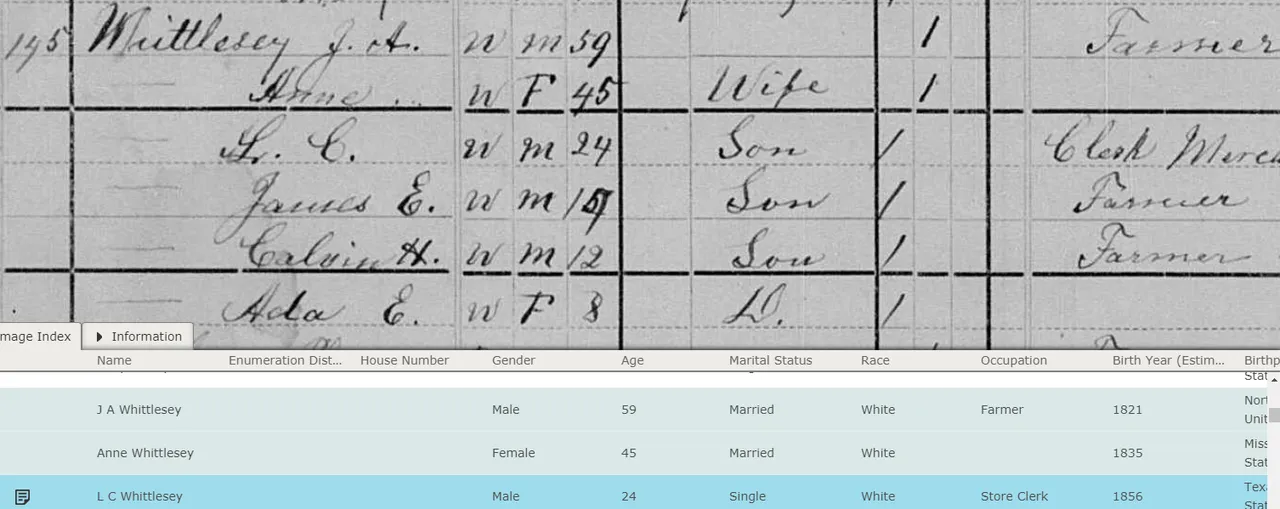 195 Whittlesey J. A. W M 59 1 Farmer
Anne W F 45 Wife 1
L. C. W M 24 Son / Clerk Merc
James E. W M Son / Farmer
Calvin H. W M 12 Son / Farmer
Ada E. W F 8 D. /
mage Index Information
Name Enumeration Dist... House Number Gender Age Marital Status Race Occupation Birth Year (Estim... Birthp
Stat
J A Whittlesey Male 59 Married White Farmer 1821 Nort
Unit
Anne Whittlesey Female 45 Married White 1835 Miss
Stat
L C Whittlesey Male 24 Single White Store Clerk 1856 Texa
Stat